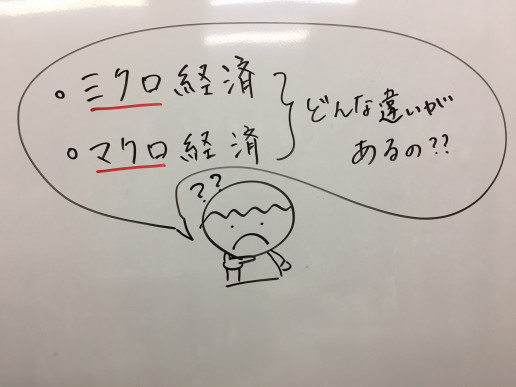 ・ミクロ経済
・マクロ経済
どんな違いが
あるの??
??